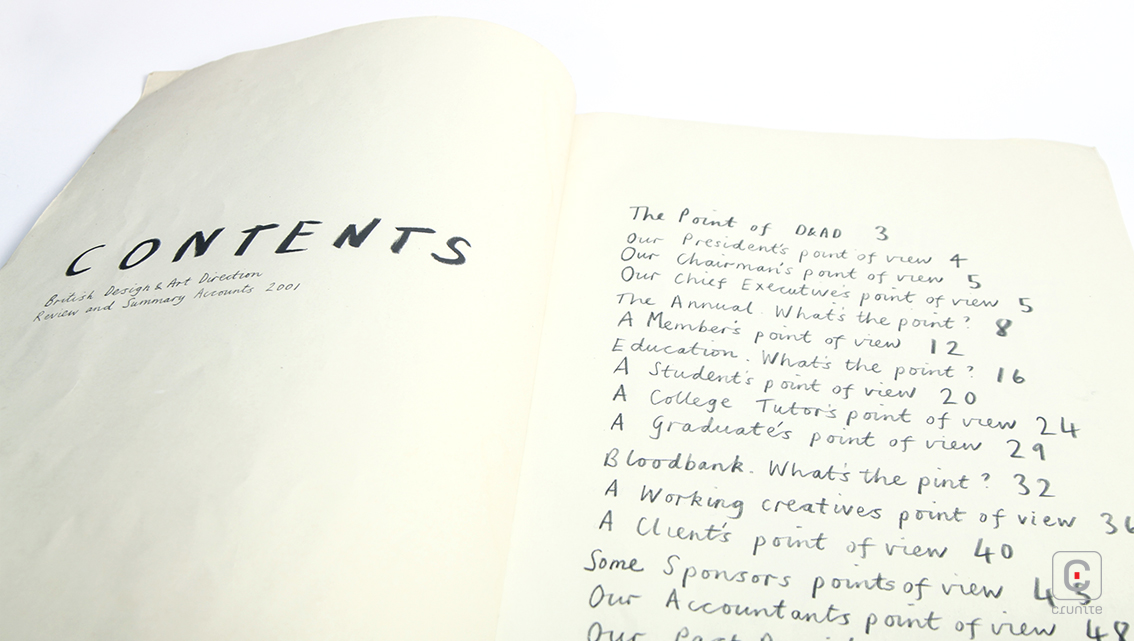 CONTENTS
British Design & Art Direction
Review and Summary Accounts 2001
The Point of D&AD 3
Our President's point of view 4
Our Chairman's point of view 5
Our Chief Executive's point of view 5
The Annual. What's the point? 8
A Member's point of view 12
Education. What's the point? 16
A Student's point of view 20
A College Tutor's point of view 24
A Graduate's point of view 29
Bloodbank. What's the pint? 32
A Working creatives point of view
A Client's point of view 40
Some Sponsors points of view
Our Accountants point of view 48
Our Past
cruntte